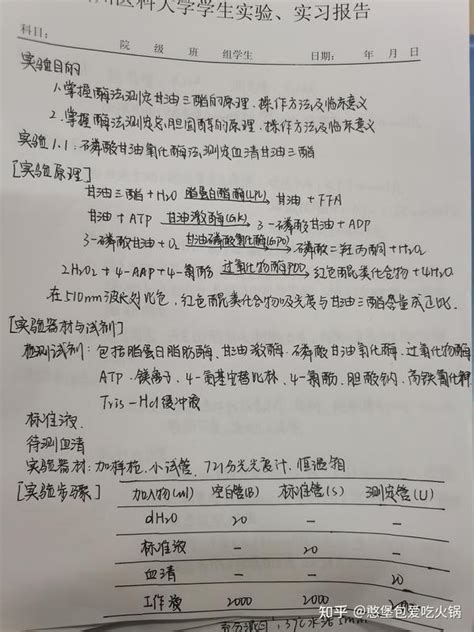 医科大学学生实验、实习报告
科目: 院 级 班 组学生 日期: 年 月 日
实验目的
1.掌握酶法测定甘油三酯的原理、操作方法及临床意义
2.掌握酶法测定总胆固醇的原理、操作方法及临床意义
实验1.1:磷酸甘油氧化酶法测定血清甘油三酯
[实验原理]
甘油三酯+H2O 脂蛋白酯酶(LPL) 甘油+FFA
甘油+ATP 甘油激酶(GK) 3-磷酸甘油+ADP
3-磷酸甘油+O2 甘油磷酸氧化酶(GPO) 磷酸二羟丙酮+H2O2
2H2O2+4-AAP+4-氯酚 过氧化物酶POD 红色醌类化合物+4H2O
在510nm波长对比色,红色醌类化合物吸光度与甘油三酯含量成正比.
[实验器材与试剂]
检测试剂:包括脂蛋白脂肪酶、甘油激酶、磷酸甘油氧化酶、过氧化物酶
ATP、镁离子、4-氨基安替比林、4-氯酚、胆酸钠、高铁氰化钾
Tris-Hcl缓冲液
标准液
待测血清
实验器材:加样枪、小试管、721分光光度计、恒温箱
[实验步骤] 加入物(ml) 空白管(B) 标准管(S) 测定管(U)
dH2O 20 - -
标准液 - 20 -
血清 - - 20
工作液 2000 2000
37℃水浴5min
知乎 @憨堡包爱吃火锅